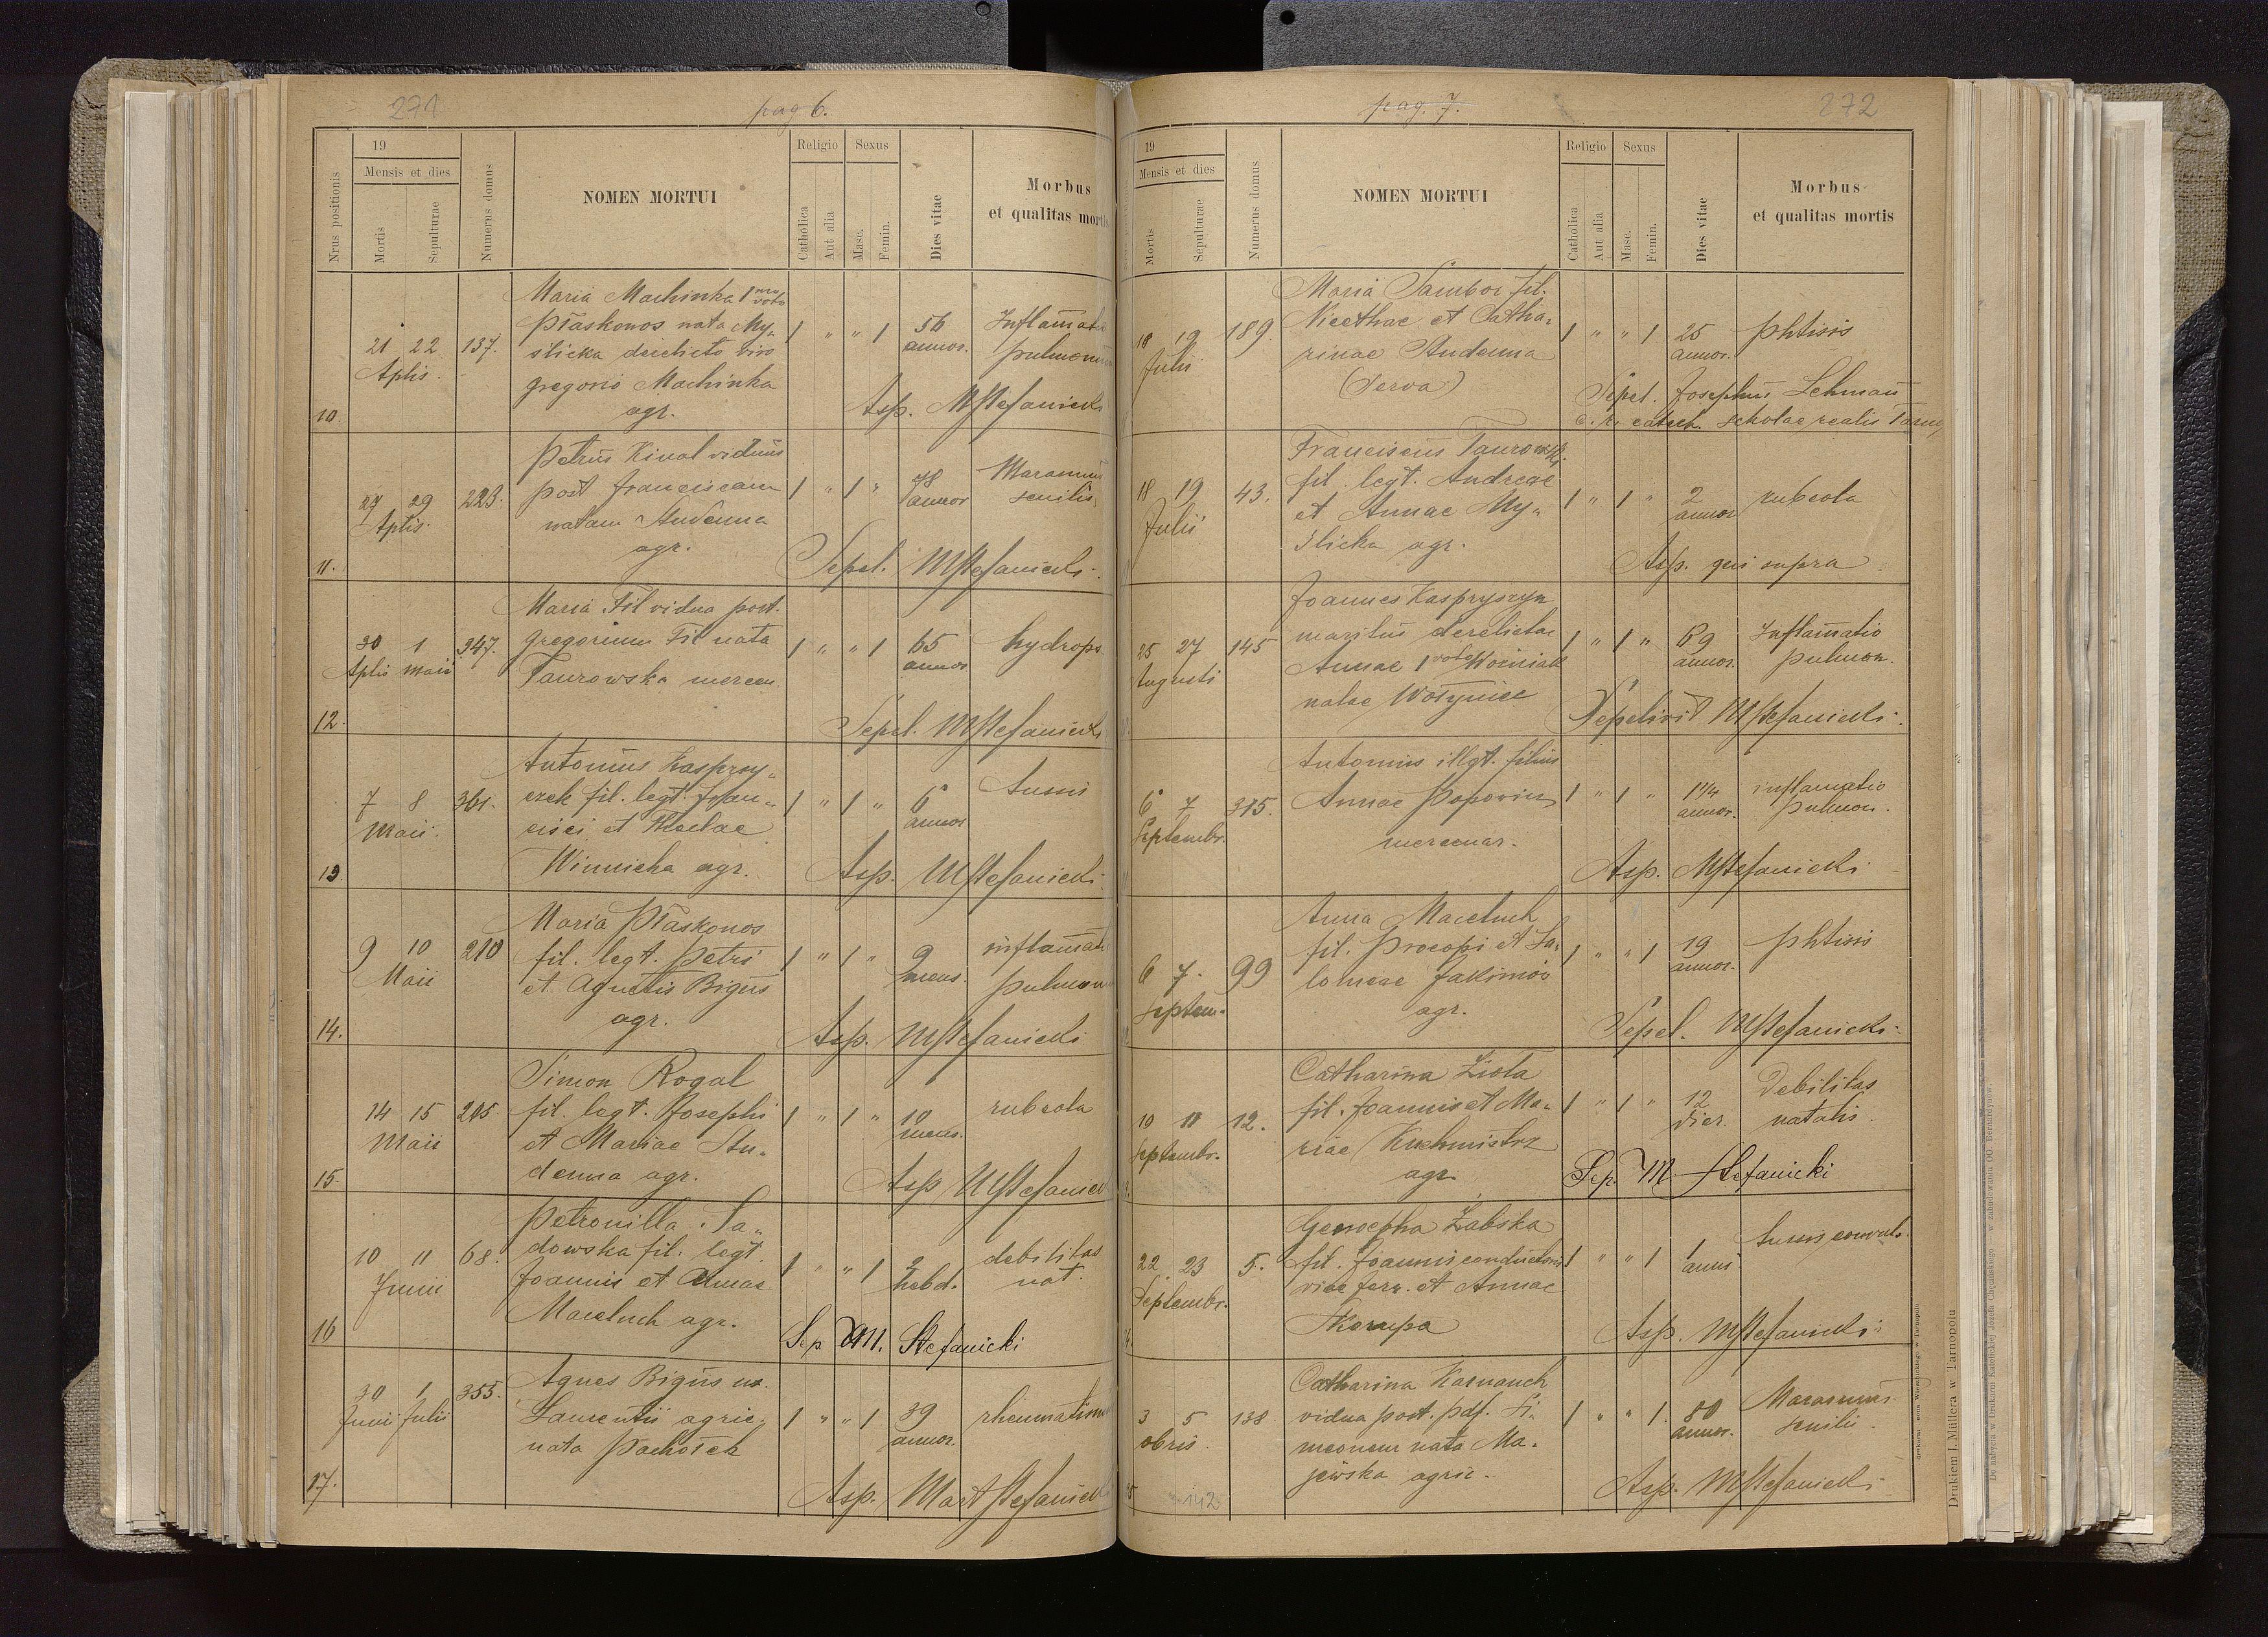 271
pag. 6.
19
Mensis et dies
Religio
Sexus
Nrus positionis
Mortis
Sepulturae
Numerus domus
NOMEN MORTUI
Catholica
Aut alia
Masc.
Femin.
Dies vitae
Morbus
et qualitas mortis
Maria Machinka 1mo voto
Płaskonos nata My-
slicka derelicto viro
gregorio Machinka
agr.
10.
21 22
Aplis.
137.
1 " " 1
56
annor.
Inflamatio
pulmonum
Asp. MStefanicki
Petrus Kinal viduus
post franciscam
natam Studenna
agr.
11.
27 29
Aplis.
223.
1 " 1 "
78
annor
Marasmus
senilis.
Sepel. MStefanicki.
Maria Fil vidua post.
gregorium Fil nata
Taurowska mercen.
12.
30 1
Aplis Maii
347.
1 " " 1
65
annor
hydrops
Sepel. MStefanicki
Antonius Kasprzy-
czek fil. legt. Fran-
cisci et Theclae
Winnicka agr.
13.
7 8
Maii.
361.
1 " 1 "
6
annor
Tussis
Asp. MStefanicki
Maria Płaskonos
fil. legt. Petri
et Agnetis Bigus
agr.
14.
9 10
Maii
210
1 " 1 "
9
mens.
inflamatio
pulmonum
Asp. MStefanicki
Simon Rogal
fil. legt. Josephi
et Mariae Stu-
denna agr.
15.
14 15
Maii
215.
1 " 1 "
10
mens.
rubeola
Asp MStefanicki
Petronilla Sa-
dowska fil. legt.
Joannis et Annae
Maceluch agr.
16
10 11
Junii
68.
1 " " 1
2
hebd.
debilitas
nat.
Sep M. Stefanicki
Agnes Bigus ux.
Laurentii agric.
nata Pachołek
17.
30 1
Junii Julii
355.
1 " " 1
39
annor.
rheumatismus
Asp. Mart Stefanicki
pag. 7.
272
19
Mensis et dies
Religio
Sexus
Mortis
Sepulturae
Numerus domus
NOMEN MORTUI
Catholica
Aut alia
Masc.
Femin.
Dies vitae
Morbus
et qualitas mortis
Maria Sambor fil.
Nicethae et Catha-
rinae Studenna
(Serva)
18 19
Julii
189.
1 " " 1
25
annor.
phtisis
Sepel. Josephus Lehman
c. r. catech. scholae realis Tarnop
Franciscus Taurowski
fil. legt. Andreae
et Annae My-
slicka agr.
18 19
Julii
43.
1 " 1 "
2
annor
rubeola
Asp. qui supra
Joannes Kaspryszyn
maritus derelictae
Annae 1 voto Woźniak
natae Wołyniec
25 27
Augusti
145
1 " 1 "
69
annor.
Inflamatio
pulmon.
Sepelivit MStefanicki.
Antonius illgt. filius
Annae Popowicz
mercenar.
6 7
Septembr.
375.
1 " 1 "
1 1/4
annor.
inflamatio
pulmon.
Asp. MStefanicki
Anna Maceluch
fil. Procopi et Sa-
lomeae Jakimów
agr.
6 7.
Septem.
99
1 " " 1
19
annor.
phtisis
Sepel. MStefanicki.
Catharina Zioła
fil. Joannis et Ma-
riae Kuchmistrz
agr.
10 11
Septembr.
12.
1 " 1 "
12
dier.
Debilitas
natalis.
Sep. M Stefanicki
Genoepha Żabska
fil. Joannis conductoris
viae ferr. et Annae
Skorupa
22 23
Septembr.
5.
1 " " 1
1
anni
Tussis convuls.
Asp. MStefanicki
Catharina Karnauch
vidua post. pdf. Si-
meonem nata Ma-
jewska agric.
3 5
8bris.
138.
1 " " 1.
80
annor.
Marasmus
senilis
Asp. MStefanicki
142
Drukiem J. Millera w Tarnopolu